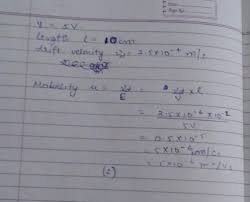 V = 5V
length l = 10cm
drift velocity = 2.5×10⁻⁴ m/s
Mobility u = /E = /V × l
= 2.5×10⁻⁴×10⁻²
5V
= 0.5×10⁻⁵
= 5×10⁻⁶ m/
= 5×10⁻⁶ m²/V